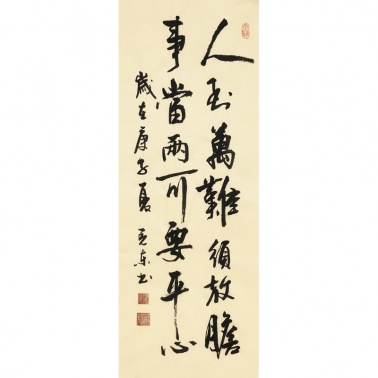 人到萬難須放膽
事當兩可要平心
歲在庚子夏